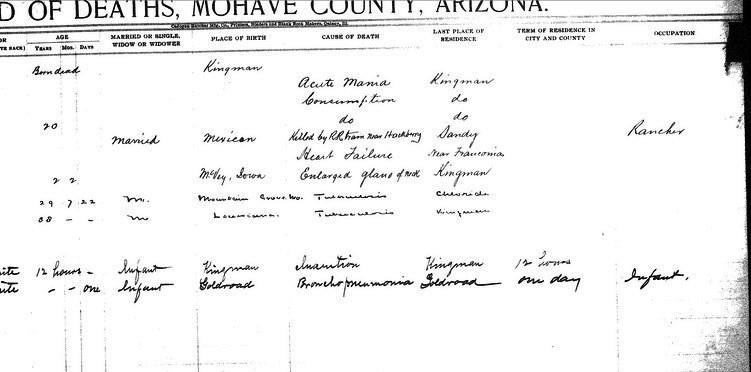 D OF DEATHS, MOHAVE COUNTY, ARIZONA.
OR AGE MARRIED OR SINGLE, PLACE OF BIRTH CAUSE OF DEATH LAST PLACE OF TERM OF RESIDENCE IN OCCUPATION
TE RACE) YEARS MO. DAYS WIDOW OR WIDOWER RESIDENCE CITY AND COUNTY
Born dead Kingman
Acute Mania Kingman
Consumption do
do do
20 Married Mexican Killed by R.R. train near Hackberry Sandy Rancher
Heart Failure Near Franconia
2 2 McVey, Iowa Enlarged gland of neck Kingman
29 7 22 M. Mountain Grove Mo. Tuberculosis Chloride
38 – – M Louisiana. Tuberculosis Kingman
ite 12 hours – Infant Kingman Inanition Kingman 12 hours
ite – – one Infant Goldroad Bronchopneumonia Goldroad one day Infant.